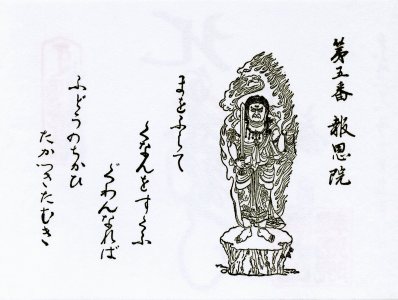 第五番 報恩院
まをふして
くなんをすくふ
ぐわんなれば
ふどうのちかひ
たかつきたむき